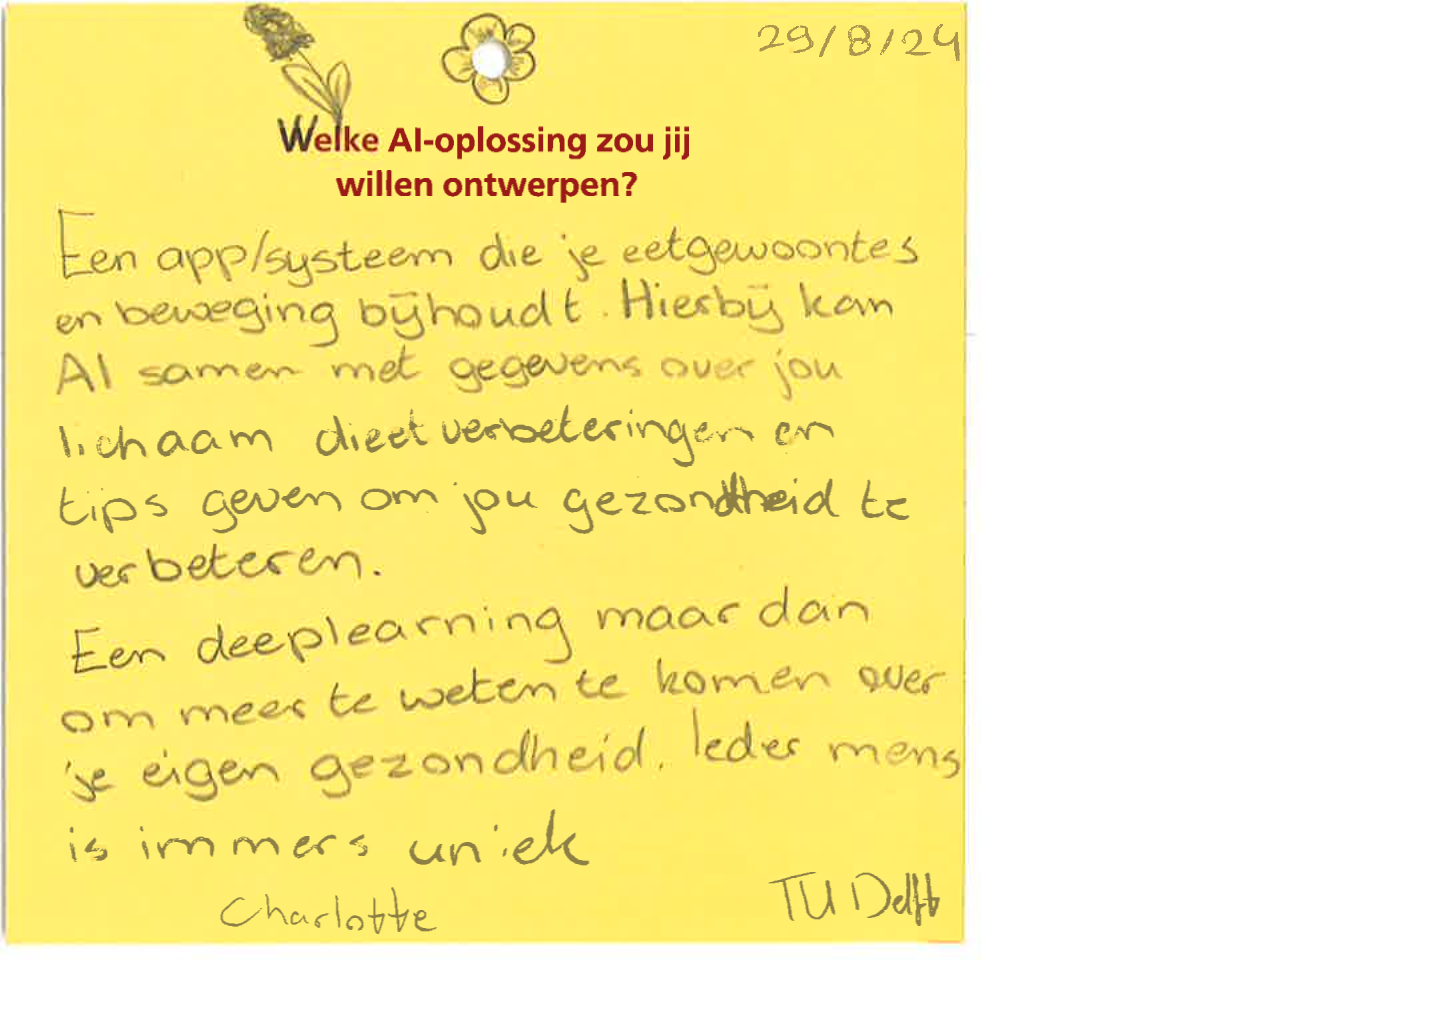 29/8/24
Welke AI-oplossing zou jij
willen ontwerpen?
Een app/systeem die je eetgewoontes
en beweging bijhoudt. Hierbij kan
AI samen met gegevens over jou
lichaam dieetverbeteringen en
tips geven om jou gezondheid te
verbeteren.
Een deeplearning maar dan
om meer te weten te komen over
je eigen gezondheid. Ieder mens
is immers uniek
Charlotte
TU Delft